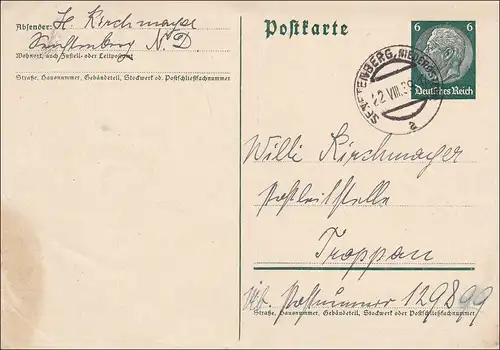 Absender: H. Kirchmayer
Senftenberg N.D
Wohnort, auch Zustell- oder Leitpostamt
Straße, Hausnummer, Gebäudeteil, Stockwerk od. Postschließfachnummer
Postkarte
6 6
Deutsches Reich
SENFTENBERG, NIEDERDONAU
22.VIII.39
a
Willi Kirchmayer
Postleitstelle
Troppau
üb. Postnummer 129899
Straße, Hausnummer, Gebäudeteil, Stockwerk oder Postschließfachnummer